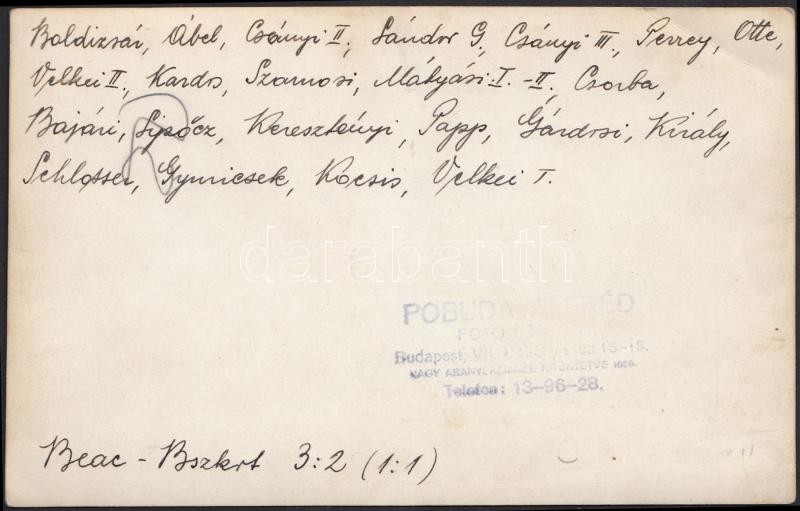 Boldizsár, Ábel, Csányi II., Sándor G., Csányi III., Perrey, Otte,
Velkei II., Kardos, Szarnosi, Mátyási I.-II., Csorba,
Bajári, Sipőcz, Keresztényi, Papp, Gárdosi, Király,
Schlosser, Gymicsek, Kocsis, Velkei I.
darabanth
POBUDA ALFRÉD
FOTO
Budapest, VII. 15-15.
NAGY ARANYÉREMMEL KITÜNTETVE
Telefon: 13-96-28.
Beac - Bszkrt 3:2 (1:1)